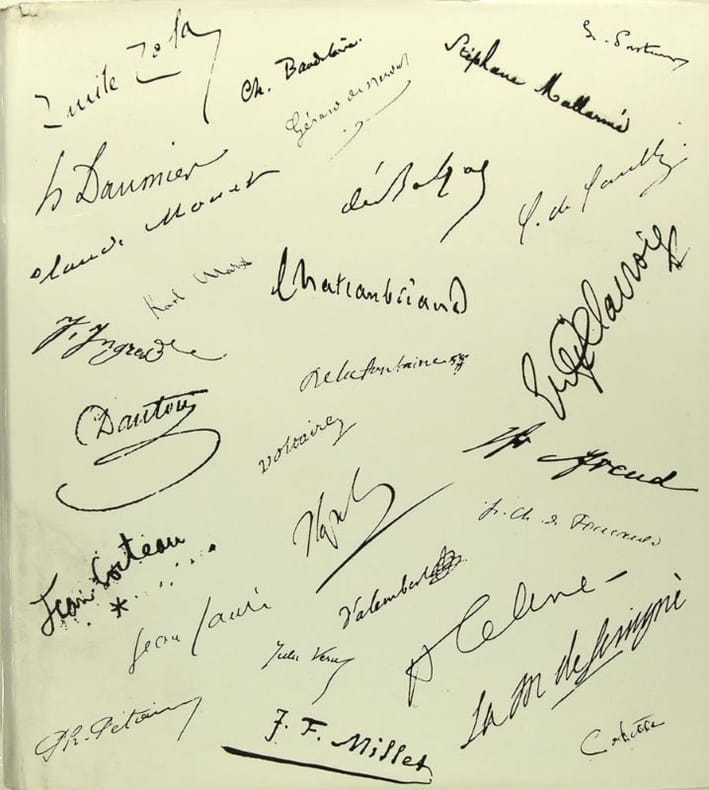 Emile Zola
Ch. Baudelaire.
Gérard de Nerval
Stéphane Mallarmé
h Daumier
de Balzac
C. de Gaulle
Claude Monet
Karl Marx
Chateaubriand
Eug Delacroix
J. Ingres
De la fontaine
Danton
Voltaire
S. Freud
Napol
Jean Cocteau
*
D'alembert
Jean Jaurès
Jules Verne
Céline
La M de Sevigné
Ph. Pétain
J. F. Millet
Colette